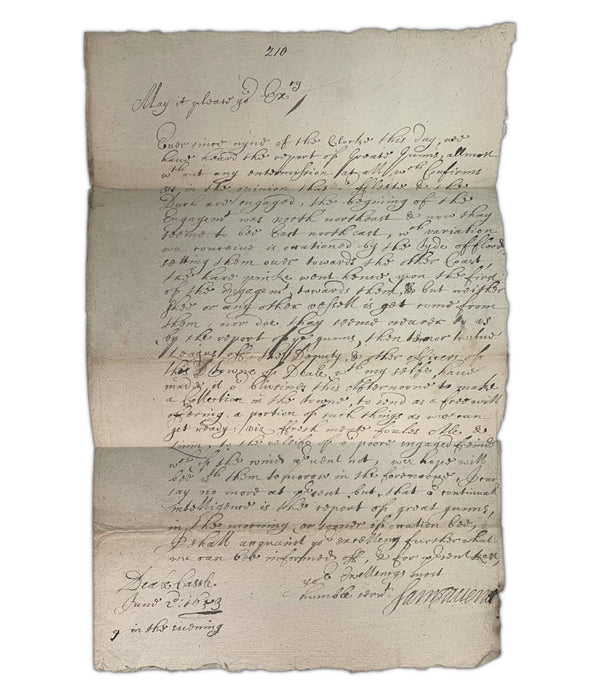 210
May it please yor Excy
Ever since nyne of the Clocke this day, wee
have heard the report of Greate Gunns, allmost
wth out any entermission att all, wch Confirms
us in the opinion that or ffleete & the
Dutch are engaged, the begining of the
Engagemt was North northeast & now thay
seeme to bee East north east, wch variation
wee conceive is ocationed by the Tyde of flood
setting them over towards the other Coast,
the hare pinke went hence upon the first
of the Engagemt towards them, & but neither
shee or any other vessell is yet come from
them, nor doe thay seeme nearer to us
by the report of ye gunns, then tenn or twelve
Leagues off, the Deputy, & other officers of
the Towne of Deale wth my selfe have
made it or businis this afternoone to make
a Collection in the towne, to send as a free will
offering, a portion of such things as wee can
get ready, viz ffresh meate foules Ale &
Linnen, to the releife of or more engaged freinds
wch if the wind prvent not, wee hope will
bee wth them to morow in the forenoone, I can
say no more at prsent but that or continuall
intelligence is the report of great gunns,
in the morning or sooner if ocation bee,
I shall acquaint yor excellency further what
wee can bee informed of, & for prsent rest,
yor Excellencys most
humble servt
Sam Tavernor
Deale Castle
June 2d: 1653
9 in the evening